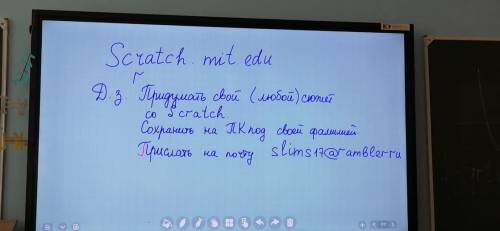 Scratch. mit edu
Д.з Придумать свой (любой) сюжет
со Scratch.
Сохранить на ПК под своей фамилией
Прислать на почту slims17@rambler.ru